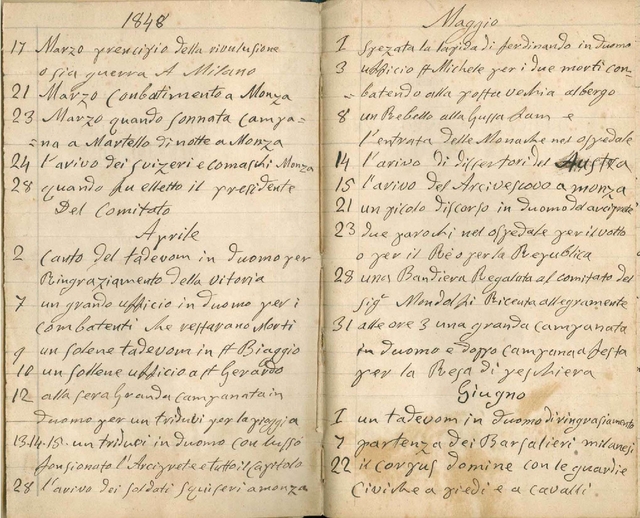 1848
17 Marzo prencipio della rivulusione
o sia guerra A Milano
21 Marzo Conbatimento a Monza
23 Marzo quando sonnata Campa=
=na a Martello di notte a Monza
24 l'arivo dei svizeri e comaschi Monza
28 quando fu elletto il presidente
Del Comitato
Aprile
2 Canto del tadevom in duomo per
Ringraziamento della vitoria
7 un grando ufficio in duomo per i
Combatenti che restarano Morti
9 un solene tadevom in St Biaggio
10 un sollene ufficio a St Gerardo
12 alla sera Granda Campanata in
duomo per un triduvi per la pioggia
13-14-15- un triduvi in duomo con lusso
fonsionato l'Arciprete e tutto il Capitolo
28 l'arivo dei soldati Squiseri a monza
Maggio
1 Spezata la lapida di ferdinando in duomo
3 ufficio St Michele per i due morti con-
batendo alla posta vechia albergo
8 un Rebello alla
l'entrata delle Monache nel ospedale
14 l'arivo di dissertori del Austria
15 l'arivo del Arcivescovo a monza
21 un picolo discorso in duomo del arciprete
23 due parochi nel ospedale per il votto
o per il Rè o per la Republica
28 una Bandiera Regalata al comitato del
Sigr Mondolfi Riceuta allegramente
31 alle ore 3 una granda campanata
in duomo e doppo campana a festa
per la Resa di peschiera
Giugno
1 un tadevom in duomo di ringrasiamento
7 partenza dei Barsalieri milanesi
22 il corpus domine con le guardie
Civiche a piedi e a cavalli